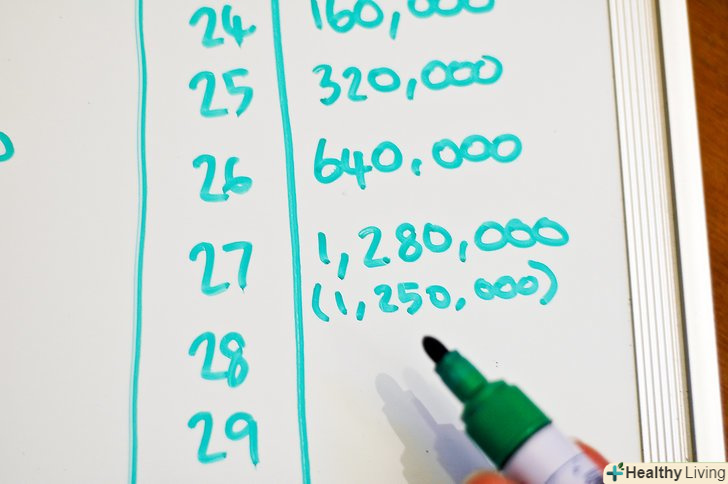 24 160,000
25 320,000
26 640,000
27 1,280,000
(1,250,000)
28
29
Healthy Living